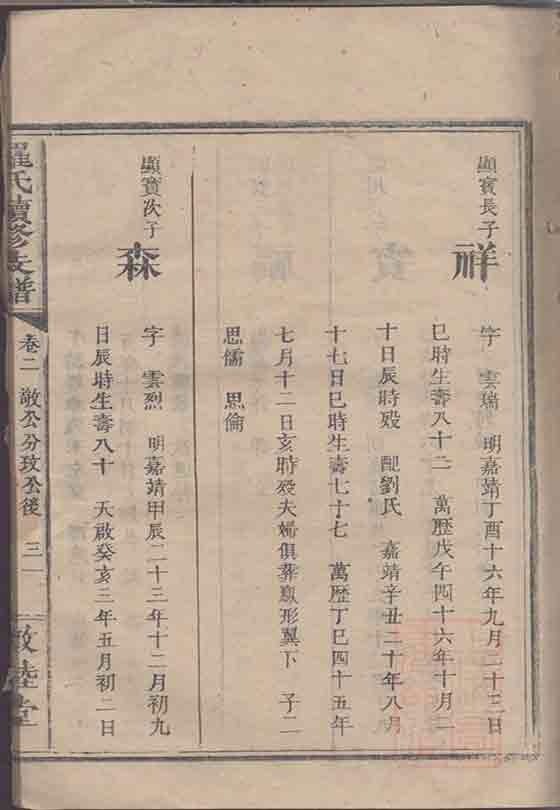 顯寶長子
祥
字 雲瑞 明嘉靖丁酉十六年九月二十三日
巳時生壽八十二 萬歷戊午四十六年十月二
十日辰時殁 配劉氏 嘉靖辛丑二十年八月
十七日巳時生壽七十七 萬歷丁巳四十五年
七月十二日亥時殁夫婦俱葬 形翼下 子二
思儒 思倫
顯寶次子
森
字 雲烈 明嘉靖甲辰二十三年十二月初九
日辰時生壽八十 天啟癸亥三年五月初二日
羅氏續修支譜
卷二 敞公分玟公後 三
敦睦堂